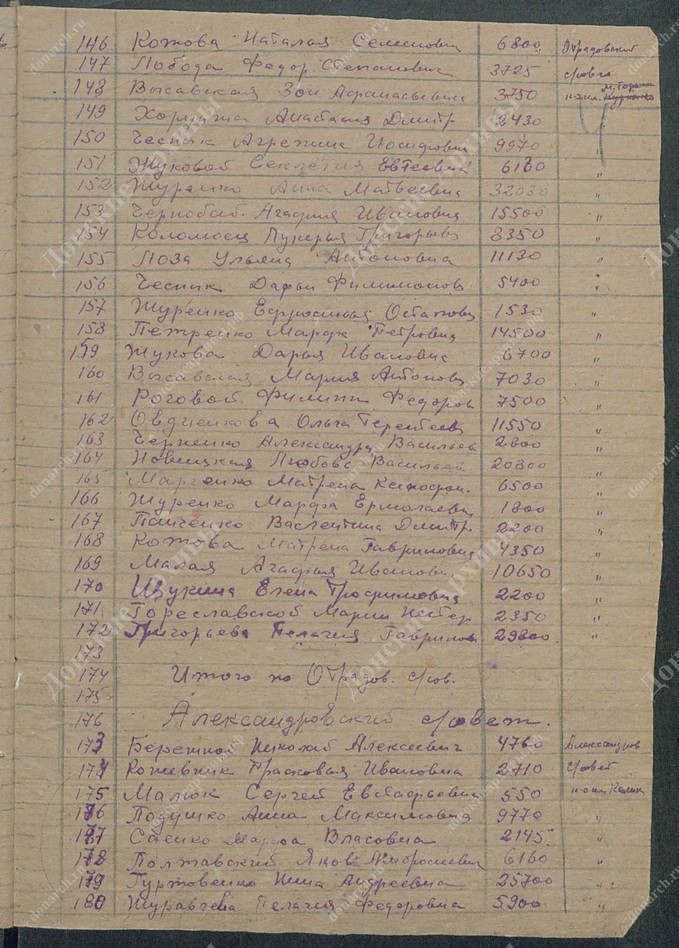 146 Кожова Наталья Семеновн 6800 Отрадовский
147 Лобода Федор Степанович 3725 с/совет
148 Высавская Зоя Афанасьевна 3750
149 Анастасия Дмитр 2430 "
150 Чесник Агрепина Иосифовна 9970 "
151 Жуковой Секлетия Евтеевн 6130 "
152 Журенко Анна Матвеевна 32030 "
153 Чернобай Агафия Ивановна 15500 "
154 Коломоец Лукерья Григорьев 8350 "
155 Лоза Ульяна Антоновна 11130 "
156 Чесник Дарьи Филимонов 5400 "
157 Журенко Ефросинья Остаповн 1530 "
158 Петренко Марфа Петровна 14500 "
159 Жукова Дарья Ивановна 6700 "
160 Высавская Мария Антонов 7030 "
161 Роговой Филипп Федоров 7500 "
162 Овдиенкова Ольга Терентьев 11550 "
163 Черненко Александра Васильев 2800 "
164 Новицкая Любовь Васильев 20800 "
165 Марченко Матрена 6500 "
166 Журенко Марфа Ермолаевн 1800 "
167 Панченко Валентина Дмитр 2200 "
168 Кожова Матрена Гавриловна 4350 "
169 Малая Агафья Ивановн 10650 "
170 Щукина Елена Трофимовна 2200 "
171 Гореславской Марии Нестер 2350 "
172 Григорьева Пелагия Гаврилов 29800 "
173
174 Итого по Отрадов. с/сов.
175
176 Александровский с/совет.
173 Бережной Николай Алексеевич 4760 Александров
174 Кожевник Прасковья Ивановна 2710 с/совет
175 Малюк Сергей Евстафьевич 550
176 Подушко Анна Максимовна 9770 "
177 Саенко Марфа Власовна 2145 "
178 Полтавский Яков Амбросиевич 6160 "
179 Гуржовенко Нина Андреевна 25700 "
180 Журавлева Пелагия Федоровна 5900 "